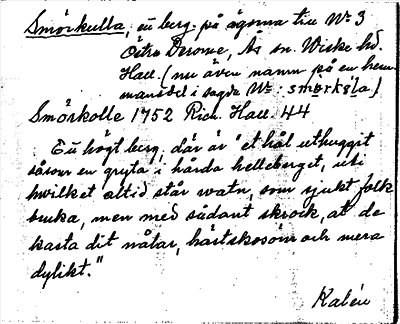 Smörkulla, ett berg på ägorna till No 3
Östra Derome, Ås sn. Viske hd.
Hall. (nu även namn på en hem-
mansdel i sagda No. smørkøla)
Smörkolle 1752 Rich. Hall. 44
"Ett högt berg, där är et hål uthuggit
såsom en gryta i hårda helleberget, uti
hwilket altid står watn, som sjukt folk
bruka, men med sådant skrock, at de
kasta dit nålar, hästskosöm och mera
dylikt."
Kalén